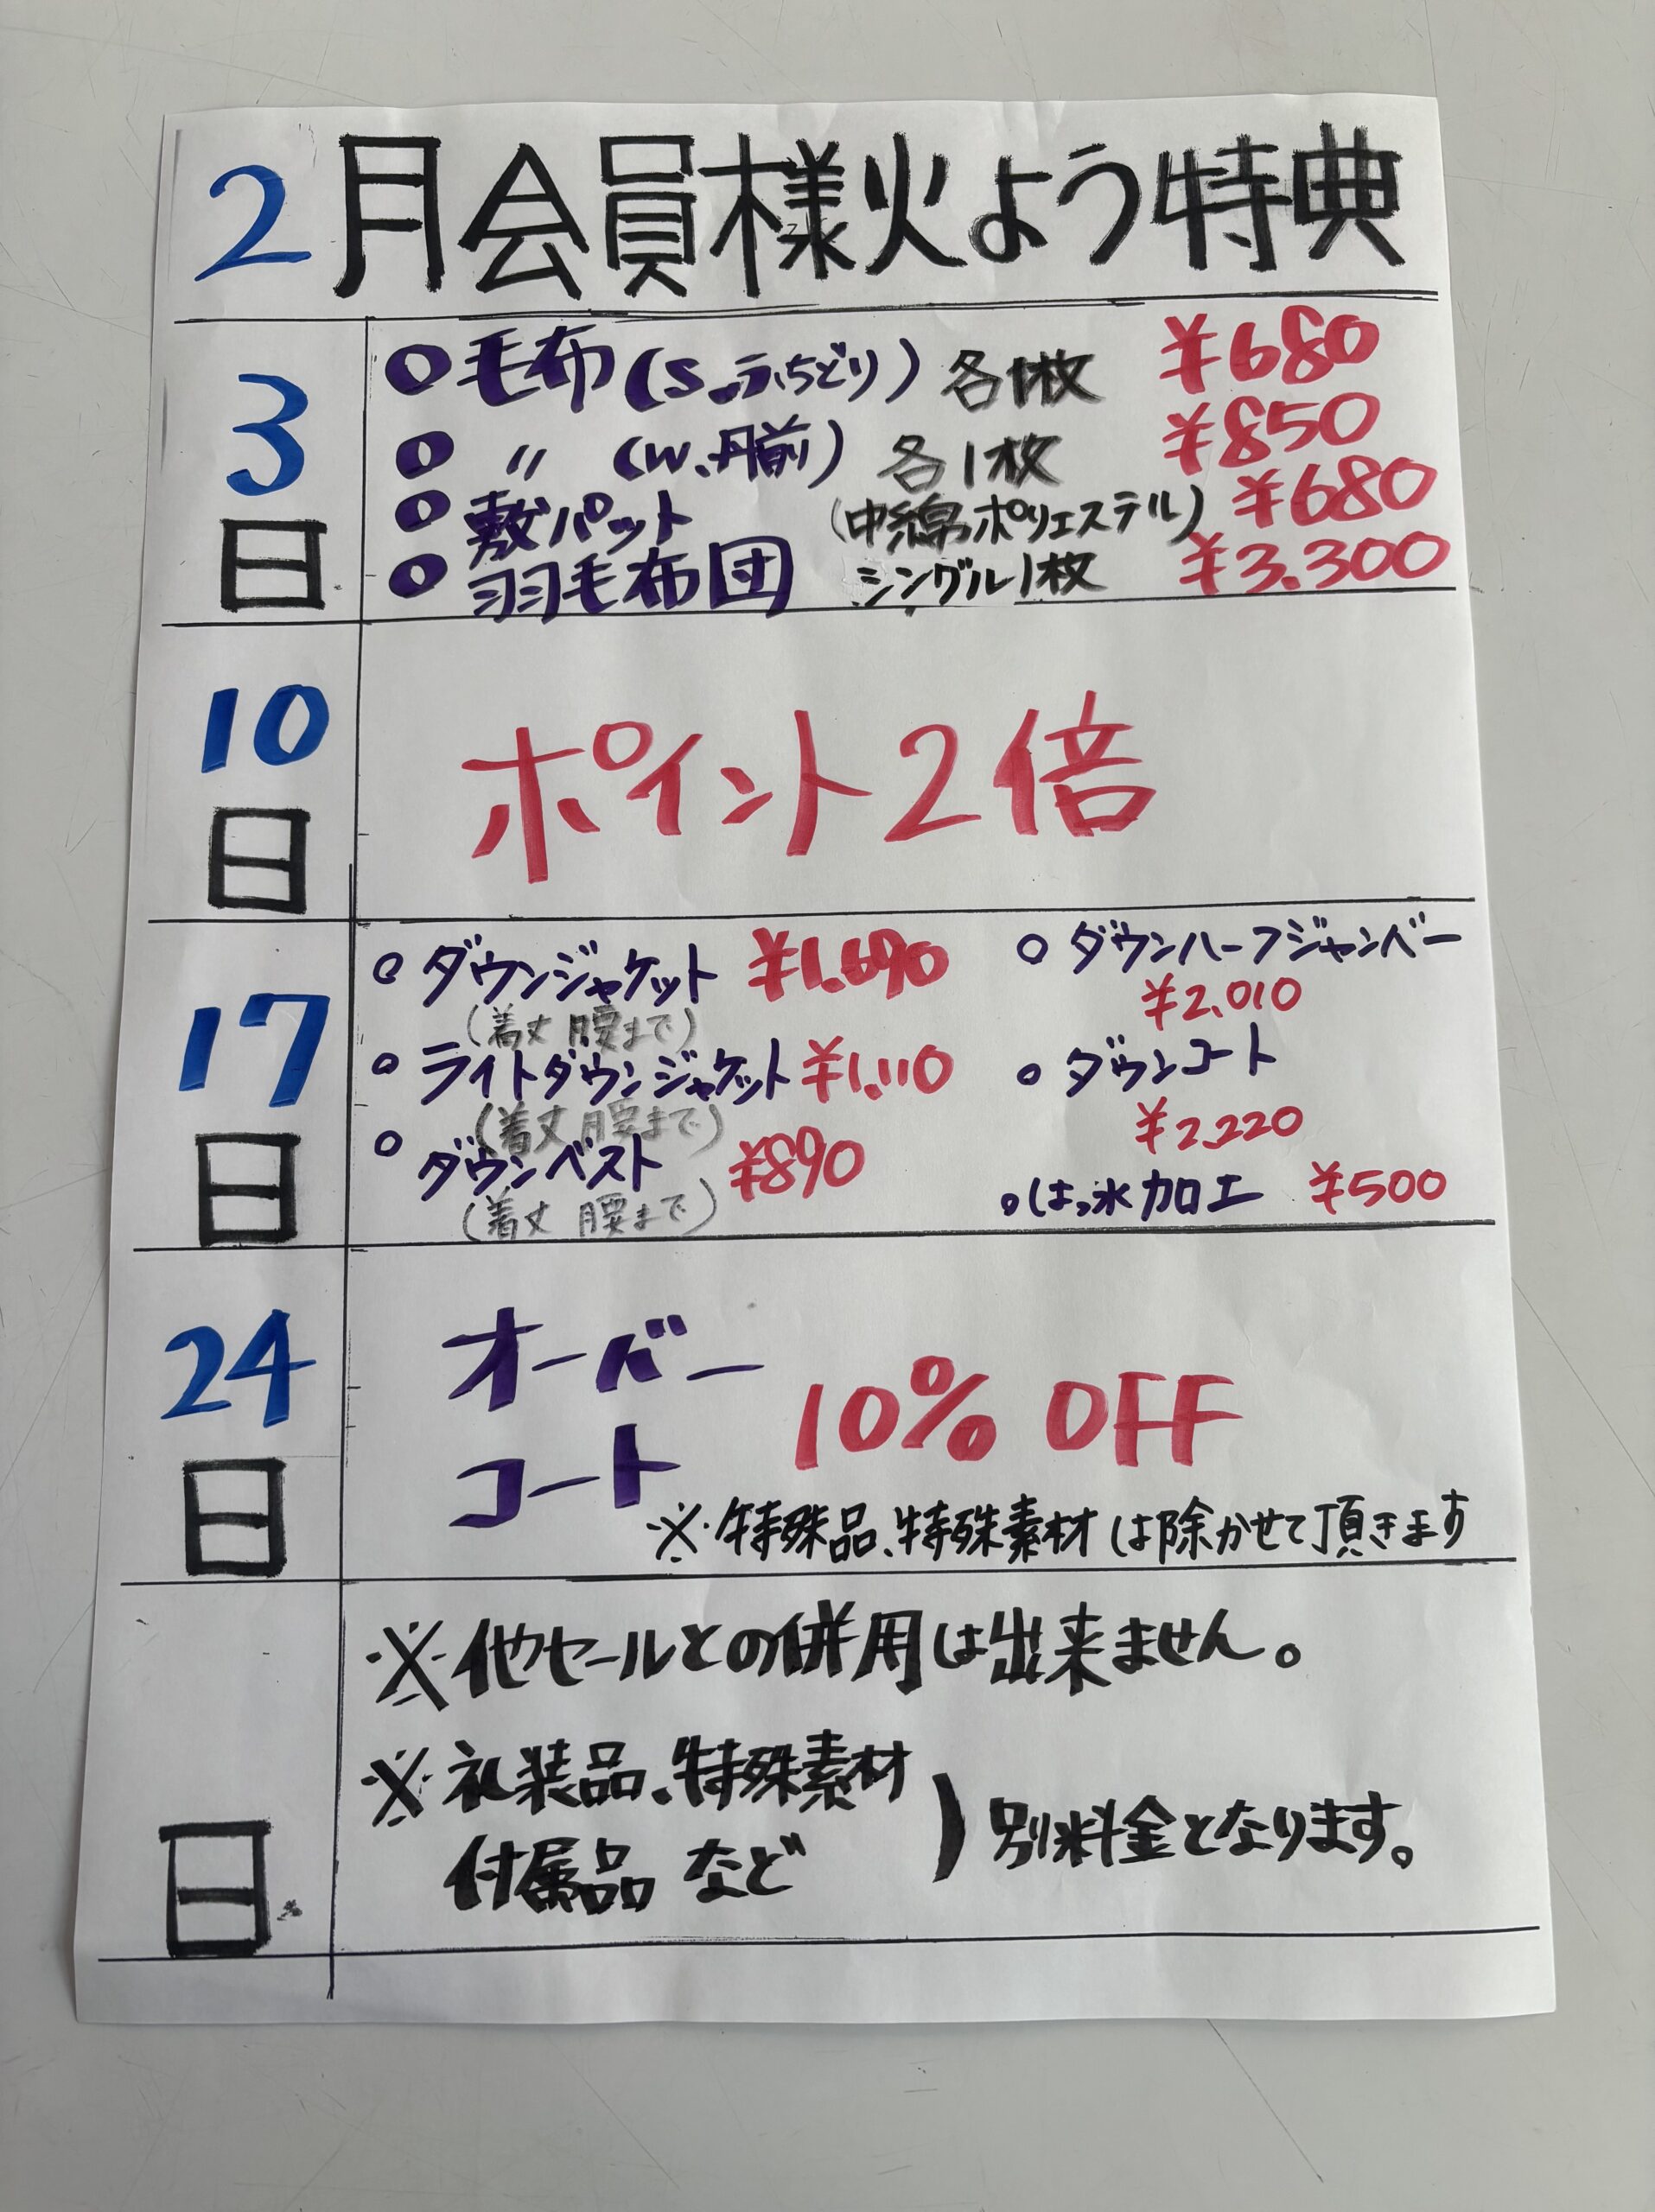 2月会員様火よう特典
3日
○毛布(S.ふちどり) 各1枚 ¥680
○ 〃 (W.丹前) 各1枚 ¥850
○敷パット (中綿ポリエステル) ¥680
○羽毛布団 シングル1枚 ¥3.300
10日
ポイント2倍
17日
○ダウンジャケット ¥1.690
(着丈 腰まで)
○ライトダウンジャケット ¥1.110
(着丈 腰まで)
○ダウンベスト ¥890
(着丈 腰まで)
○ダウンハーフジャンバー
¥2.010
○ダウンコート
¥2.220
○はっ水加工 ¥500
24日
オーバー
コート
10% OFF
※特殊品、特殊素材は除かせて頂きます
日
※他セールとの併用は出来ません。
※礼装品、特殊素材
付属品 など
)別料金となります。